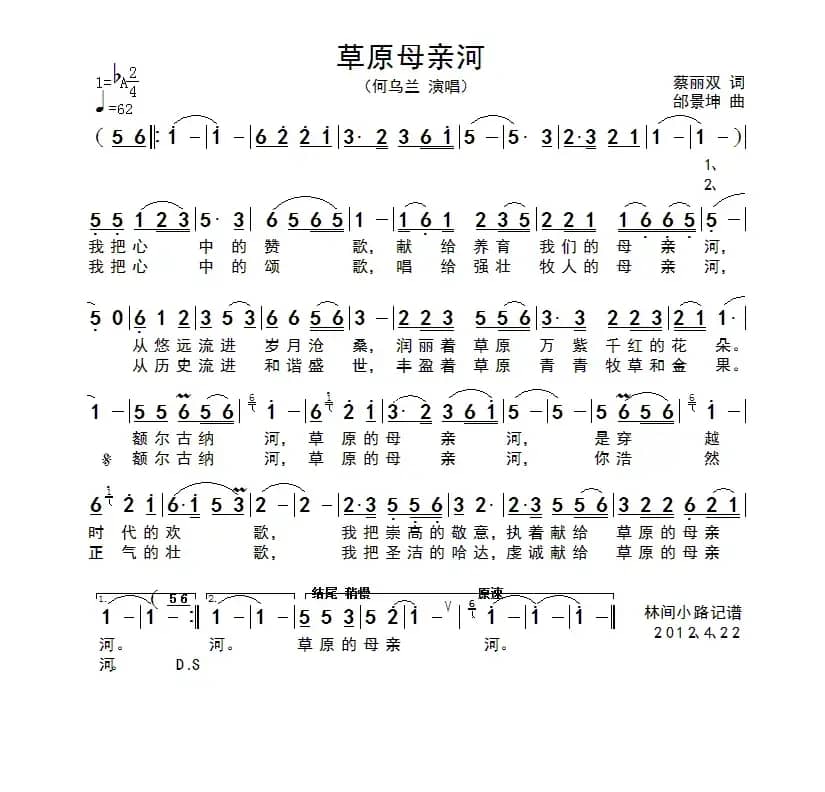 草原母亲河
(何乌兰 演唱)
1=♭A 2/4
♩=62
蔡丽双 词
邰景坤 曲
( 5 6 |: 1 - | 1 - | 6 2 2 1 | 3· 2 3 6 1 | 5 - | 5· 3 | 2·3 2 1 | 1 - | 1 - ) |
1、
2、
5 5 1 2 3 | 5· 3 6 5 6 5 | 1 - | 1 6 1 2 3 5 | 2 2 1 1 6 6 5 | 5 - |
我把心 中的赞 歌，献给养育 我们的母亲河，
我把心 中的颂 歌，唱给强壮 牧人的母亲河，
5 0 | 6 1 2 | 3 5 3 | 6 6 5 6 | 3 - | 2 2 3 5 5 6 | 3· 3 2 2 3 | 2 1 1· |
从悠远流进 岁月沧桑，润丽着草原 万紫千红的花朵。
从历史流进 和谐盛世，丰盈着草原 青青牧草和金果。
1 - | 5 5 6 5 6 | 6 1 - | 6 1 2 1 | 3· 2 3 6 1 | 5 - | 5 - | 5 6 5 6 | 6 1 - |
额尔古纳 河，草原的母亲 河，是穿 越
额尔古纳 河，草原的母亲 河，你浩 然
6 1 2 1 | 6·1 5 3 | 2 - | 2 - | 2·3 5 5 6 | 3 2 2·3 | 5 5 6 | 3 2 2 6 2 1 |
时代的欢 歌，我把崇高的敬意，执着献给 草原的母亲
正气的壮 歌，我把圣洁的哈达，虔诚献给 草原的母亲
1. 2. 结尾 稍慢 原速
1 - | 1 - ( 5 6 :| 1 - | 1 - | 5 5 3 | 5 2 1 ∨ | 6 1 - | 1 - | 1 - ‖
河。 河。 草原的母亲 河。
河。 D.S
林间小路记谱
2012、4、22